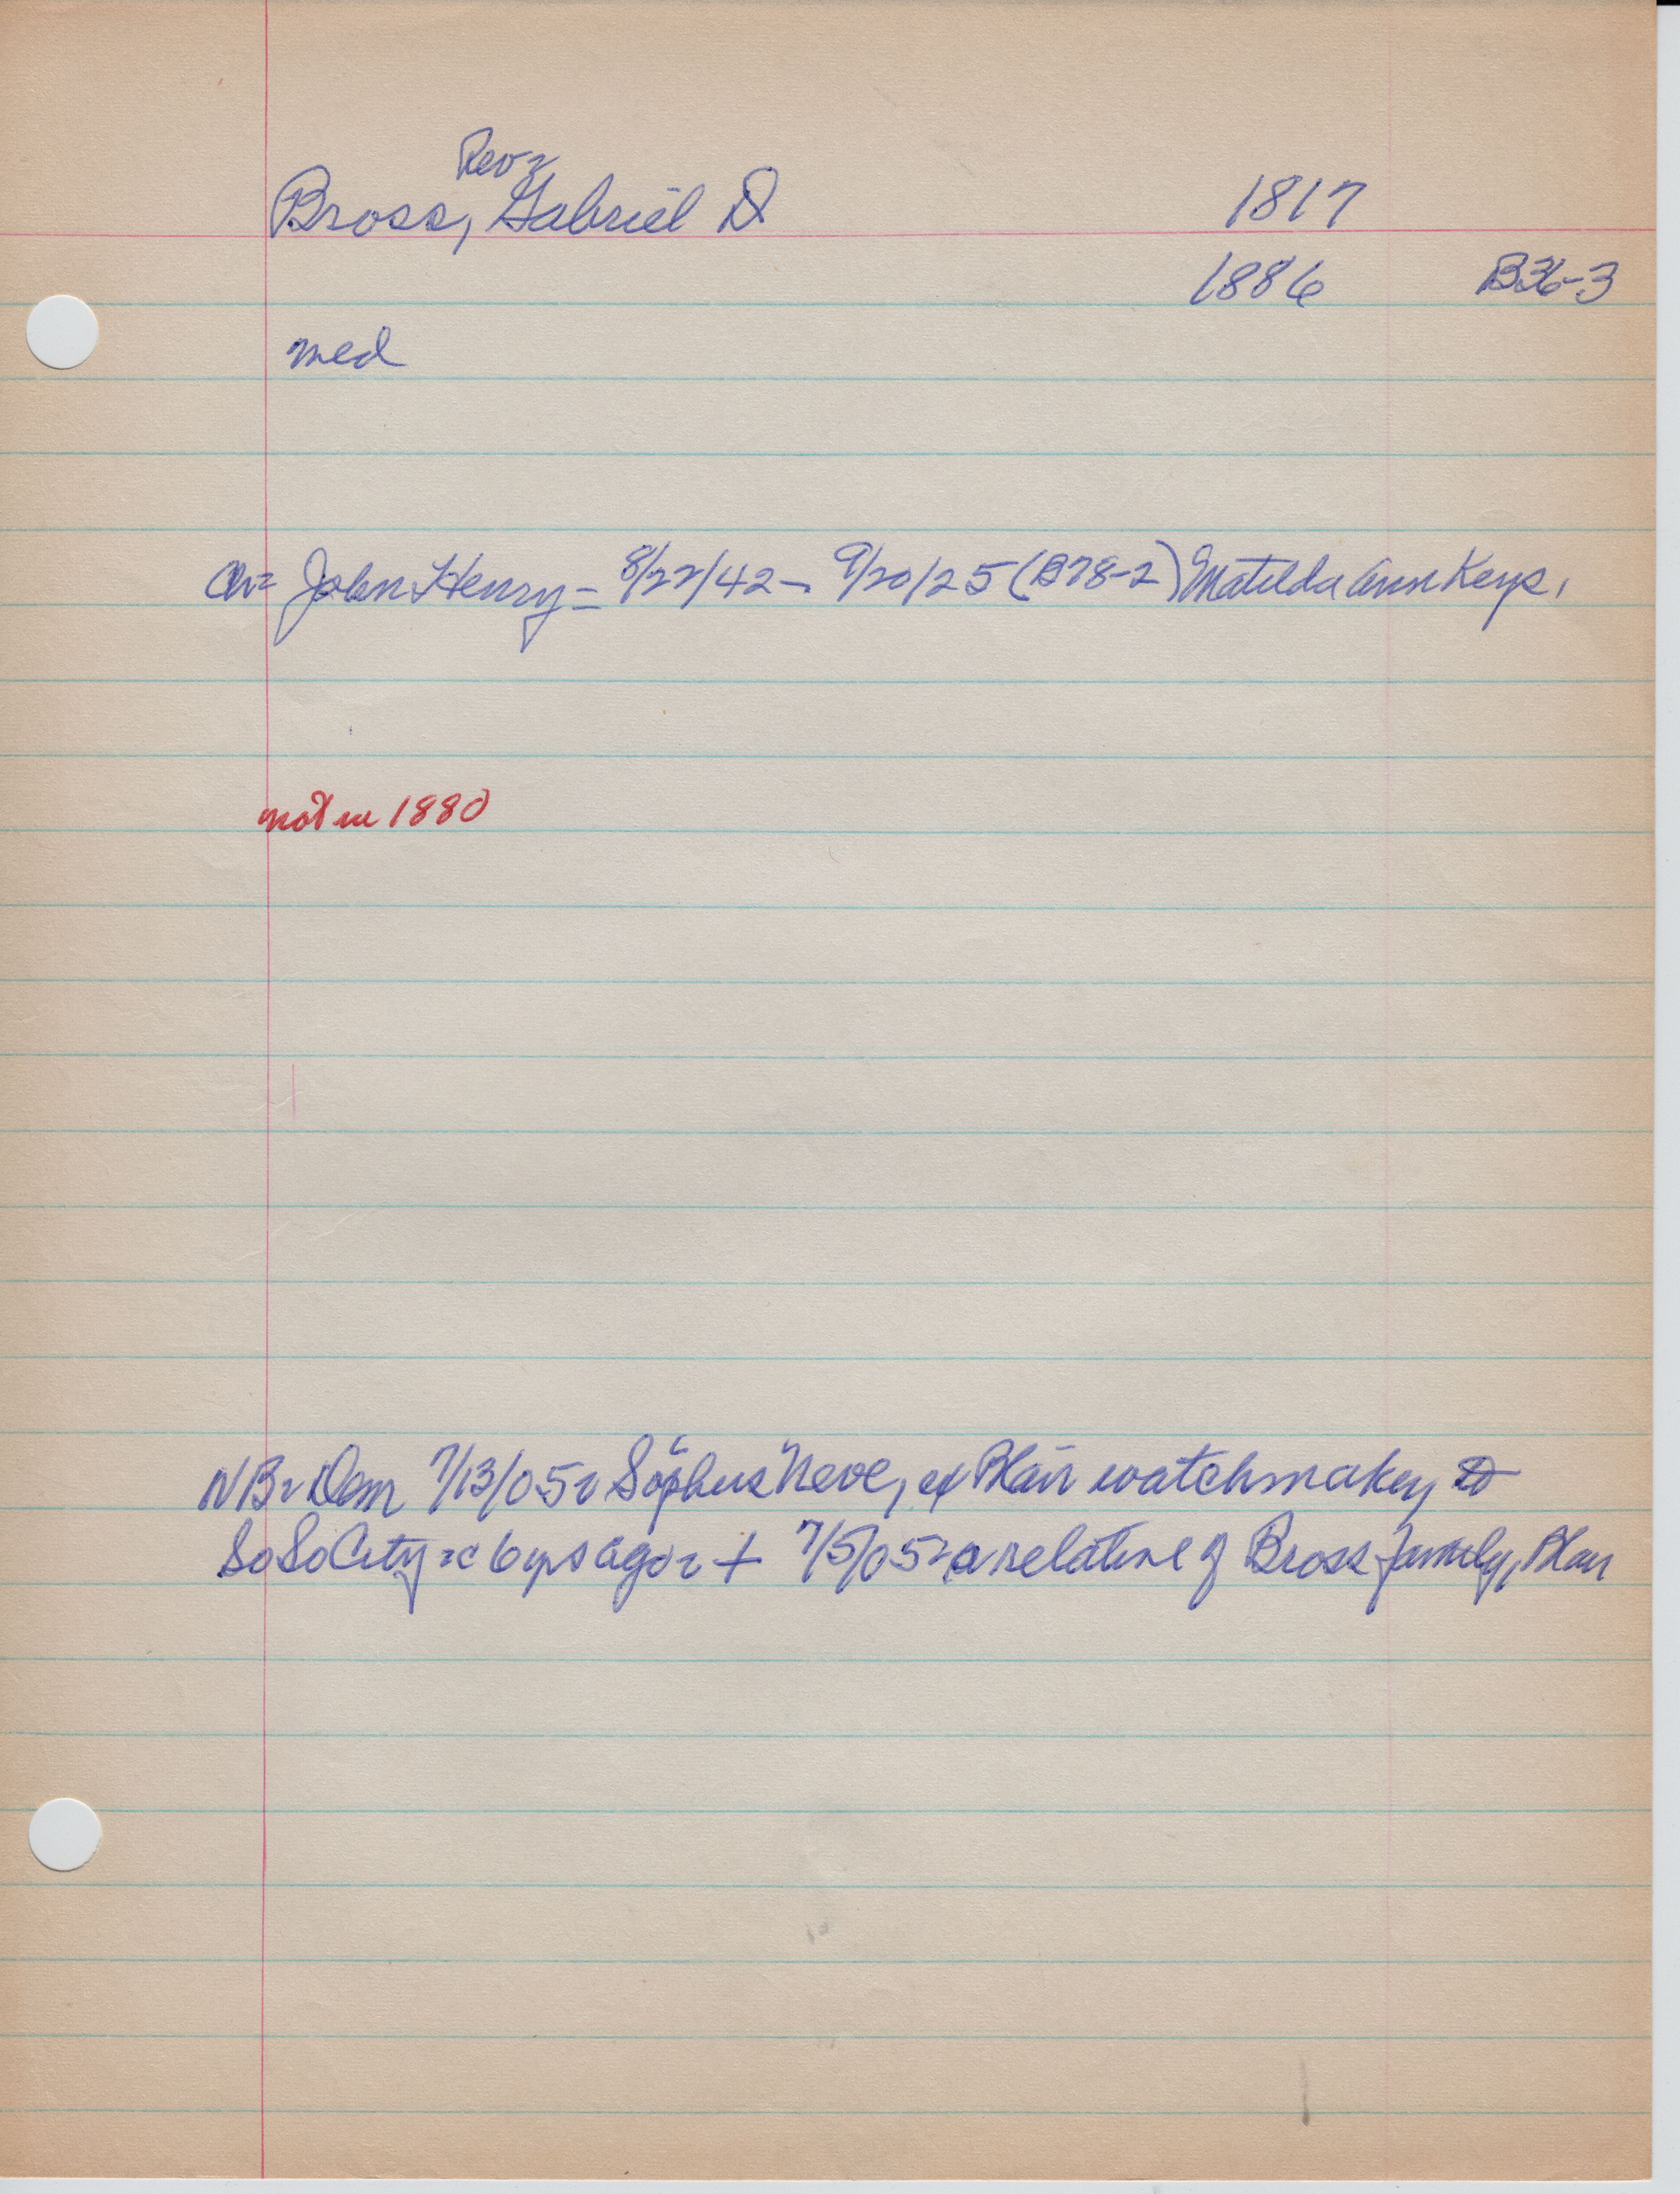 Rev=
Bross, Gabriel D 1817
1886 B36-3
med
Ch= John Henry = 8/22/42 - 9/20/25 (B78-2) Matilda Ann Keys,
not in 1880
NB= Dem 7/13/05= Sophus Neve, ex Blair watchmaker, to
So So City =c 6 yrs ago = + 7/5/05= a relative of Bross family, Blair